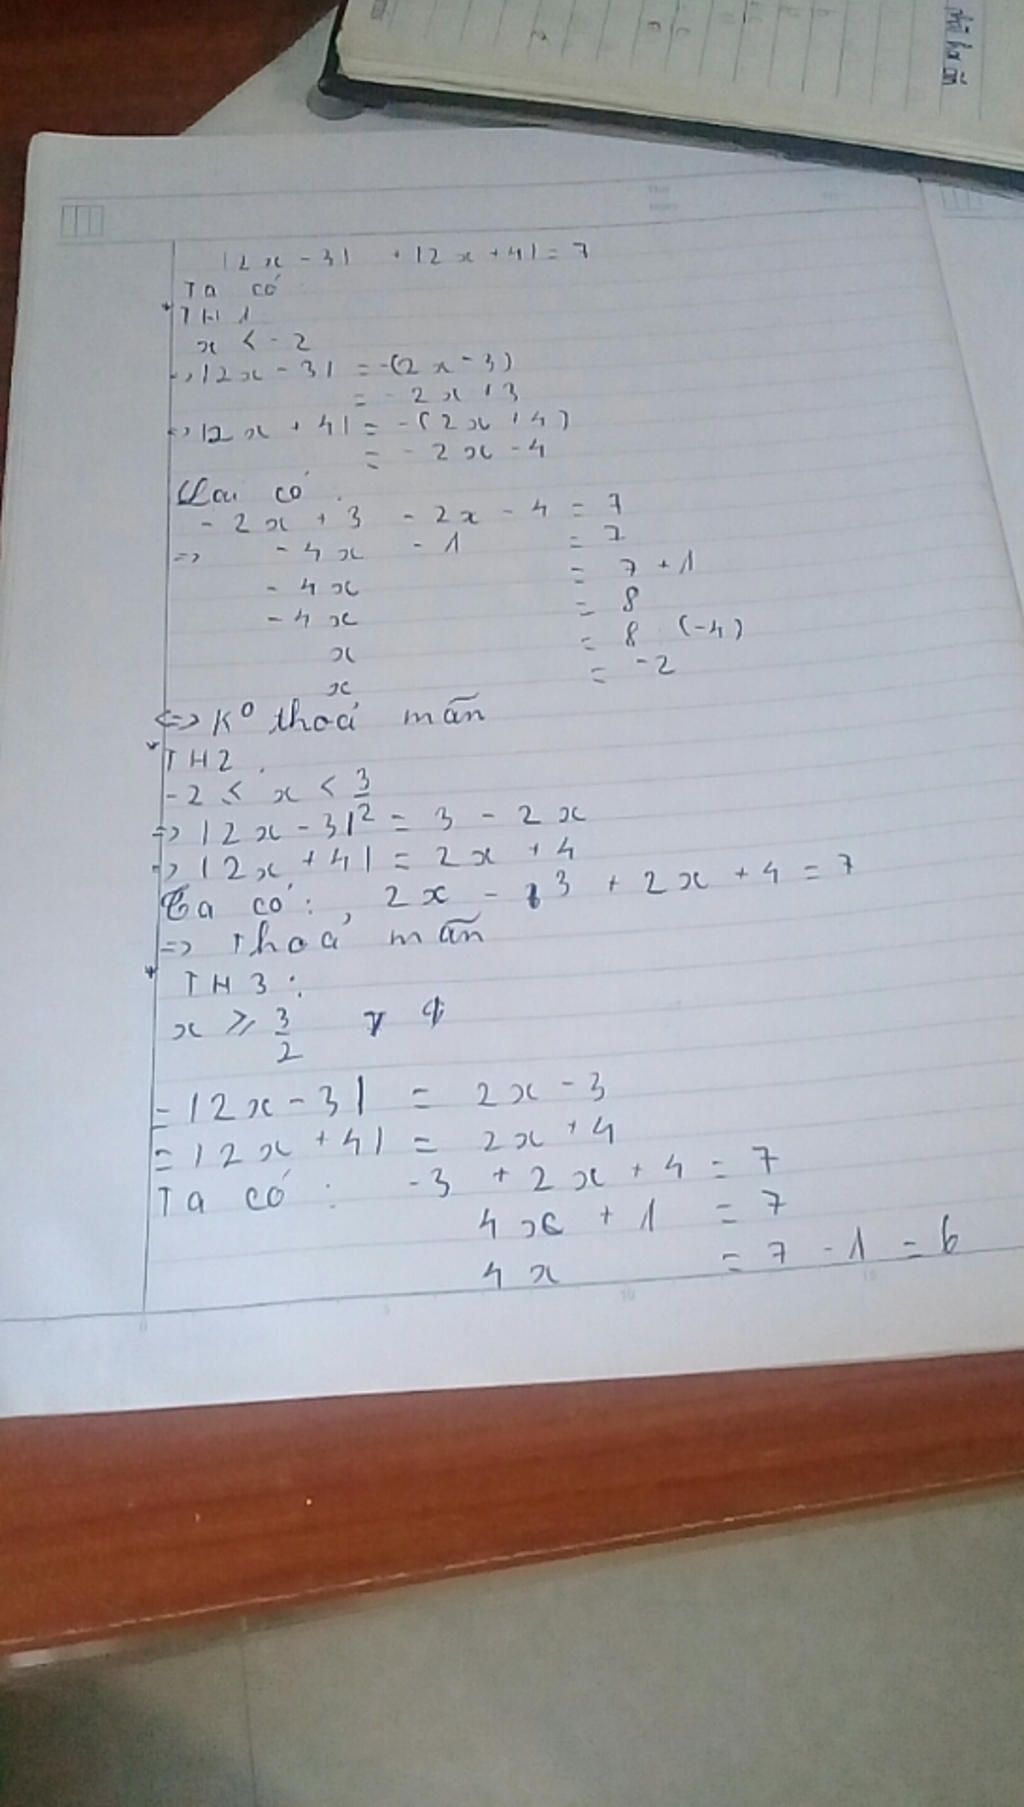 |2x - 3| + |2x + 4| = 7
Ta có
* TH 1
x < - 2
=> |2x - 3| = -(2x - 3)
= - 2x + 3
=> |2x + 4| = -(2x + 4)
= - 2x - 4
có
- 2x + 3 - 2x - 4 = 7
=> - 4x - 1 = 7
- 4x = 7 + 1
- 4x = 8
x = 8 (-4)
x = -2
<=> K° thoả mãn
* TH2
-2 ≤ x < 3/2
=> |2x - 3| = 3 - 2x
=> |2x + 4| = 2x + 4
Ta có: 2x - 3 + 2x + 4 = 7
=> Thoả mãn
* TH 3 :
x ≥ 3/2
= |2x - 3| = 2x - 3
= |2x + 4| = 2x + 4
Ta có : -3 + 2x + 4 = 7
4x + 1 = 7
4x = 7 - 1 = 6